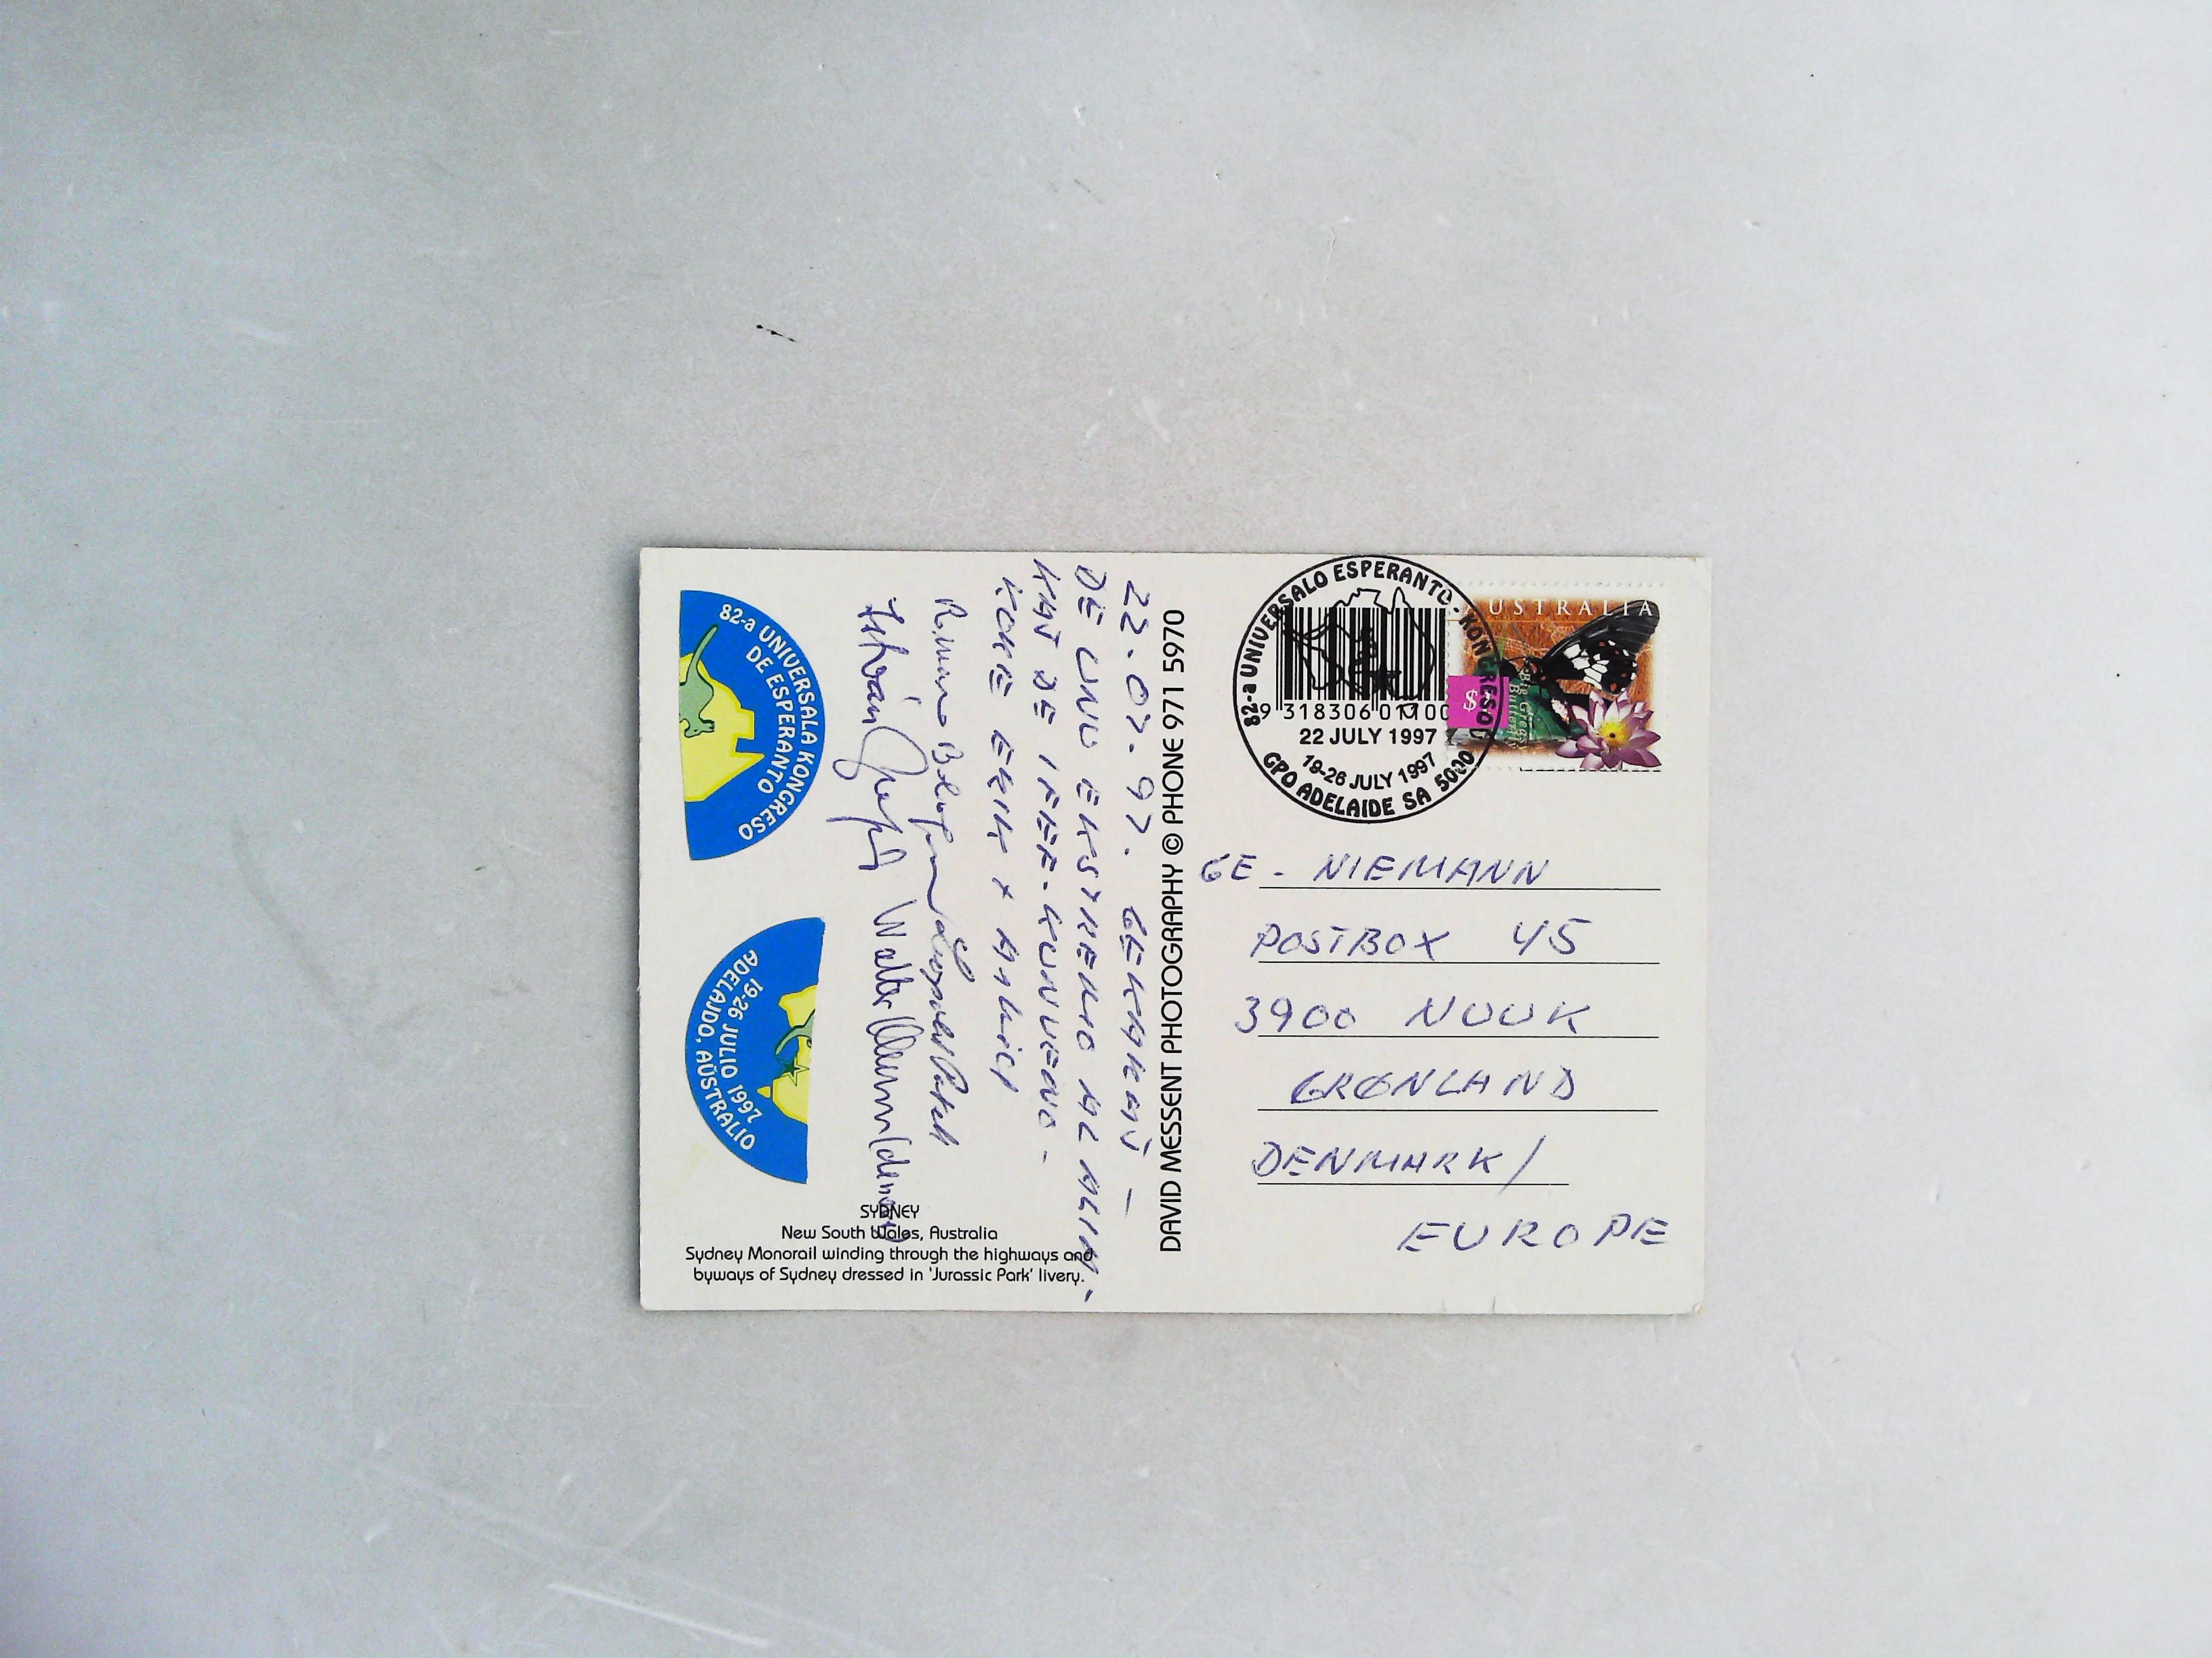 82-a UNIVERSALA KONGRESO
DE ESPERANTO
19-26 JULIO 1997
ADELAJDO, AŬSTRALIO
22.07.97. GEKARAJ -
DE UNU EKSTREMO AL ALIA -
KAJ DE IFEF-KUNVENO -
KORE ERIK + ANKICI
István
Walter
SYDNEY
New South Wales, Australia
Sydney Monorail winding through the highways and
byways of Sydney dressed in 'Jurassic Park' livery.
DAVID MESSENT PHOTOGRAPHY © PHONE 971 5970
82-a UNIVERSALO ESPERANTO-KONGRESO
9 318306 01100
22 JULY 1997
19-26 JULY 1997
GPO ADELAIDE SA 5000
AUSTRALIA
$
GE - NIEMANN
POSTBOX 45
3900 NUUK
GRØNLAND
DENMARK/
EUROPE